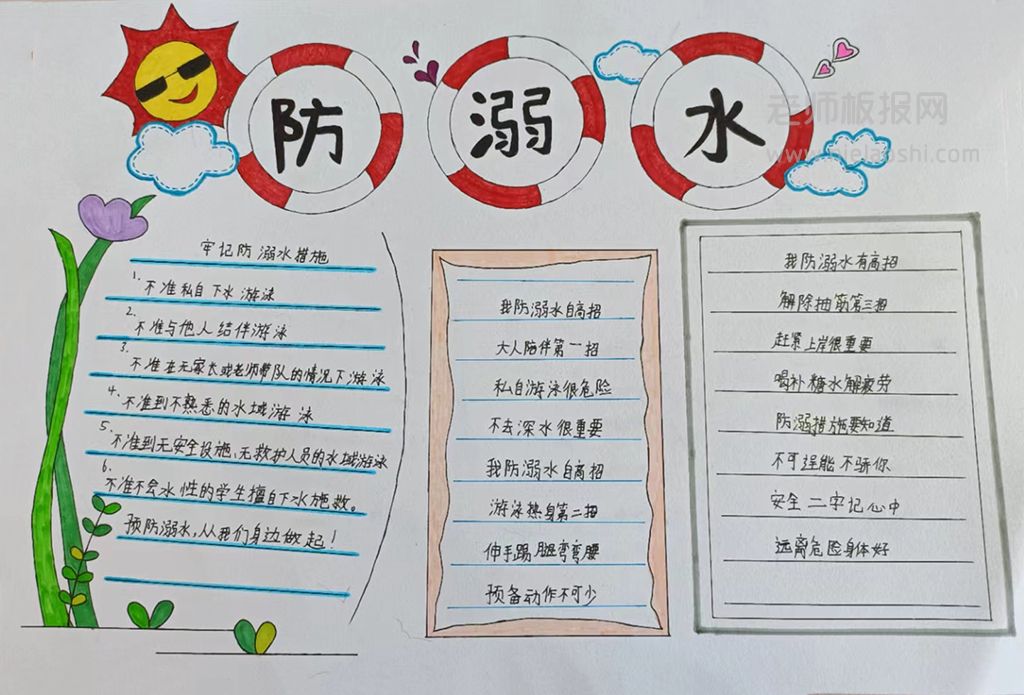 防溺水
老师板报网
牢记防溺水措施
1. 不准私自下水游泳
2. 不准与他人结伴游泳
3. 不准在无家长或老师带队的情况下游泳
4. 不准到不熟悉的水域游泳
5. 不准到无安全设施、无救护人员的水域游泳
6. 不准不会水性的学生擅自下水施救。
预防溺水,从我们身边做起!
我防溺水自高招
大人陪伴第一招
私自游泳很危险
不去深水很重要
我防溺水自高招
游泳热身第二招
伸手踢腿弯弯腰
预备动作不可少
我防溺水有高招
解除抽筋第三招
赶紧上岸很重要
喝补糖水解疲劳
防溺措施要知道
不可逞能不骄你
安全二字记心中
远离危险身体好